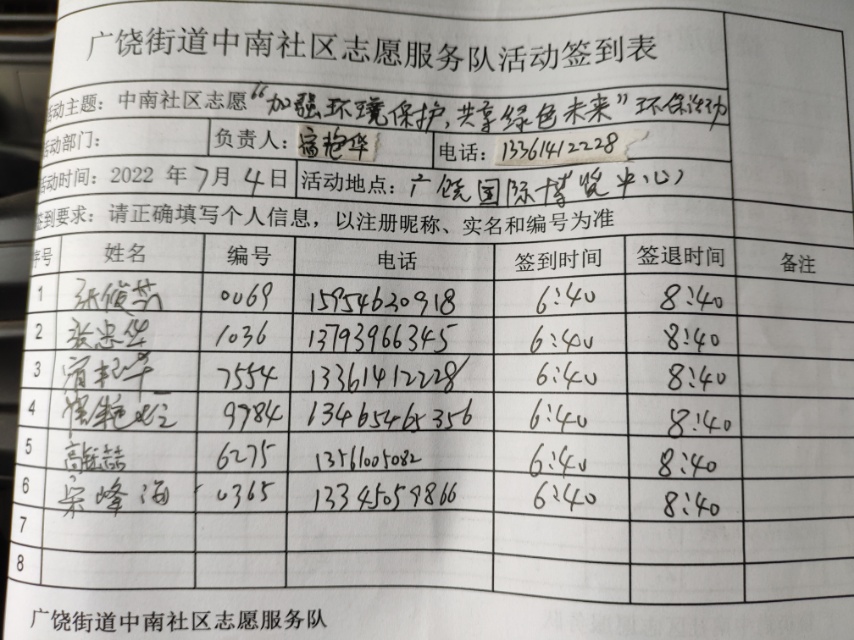 广饶街道中南社区志愿服务队活动签到表
活动主题：中南社区志愿“加强环境保护，共享绿色未来”环保活动
活动部门： 负责人： 电话：13361412228
活动时间：2022 年 7月 4日 活动地点：广饶国际博览中心
签到要求：请正确填写个人信息，以注册昵称、实名和编号为准
序号 姓名 编号 电话 签到时间 签退时间 备注
1 0069 15954630918 6:40 8:40
2 张忠华 1036 13793966345 6:40 8:40
3 7554 13361412228 6:40 8:40
4 9984 13465465356 6:40 8:40
5 6275 13561005082 6:40 8:40
6 宋峰海 0365 13345059866 6:40 8:40
7
8
广饶街道中南社区志愿服务队